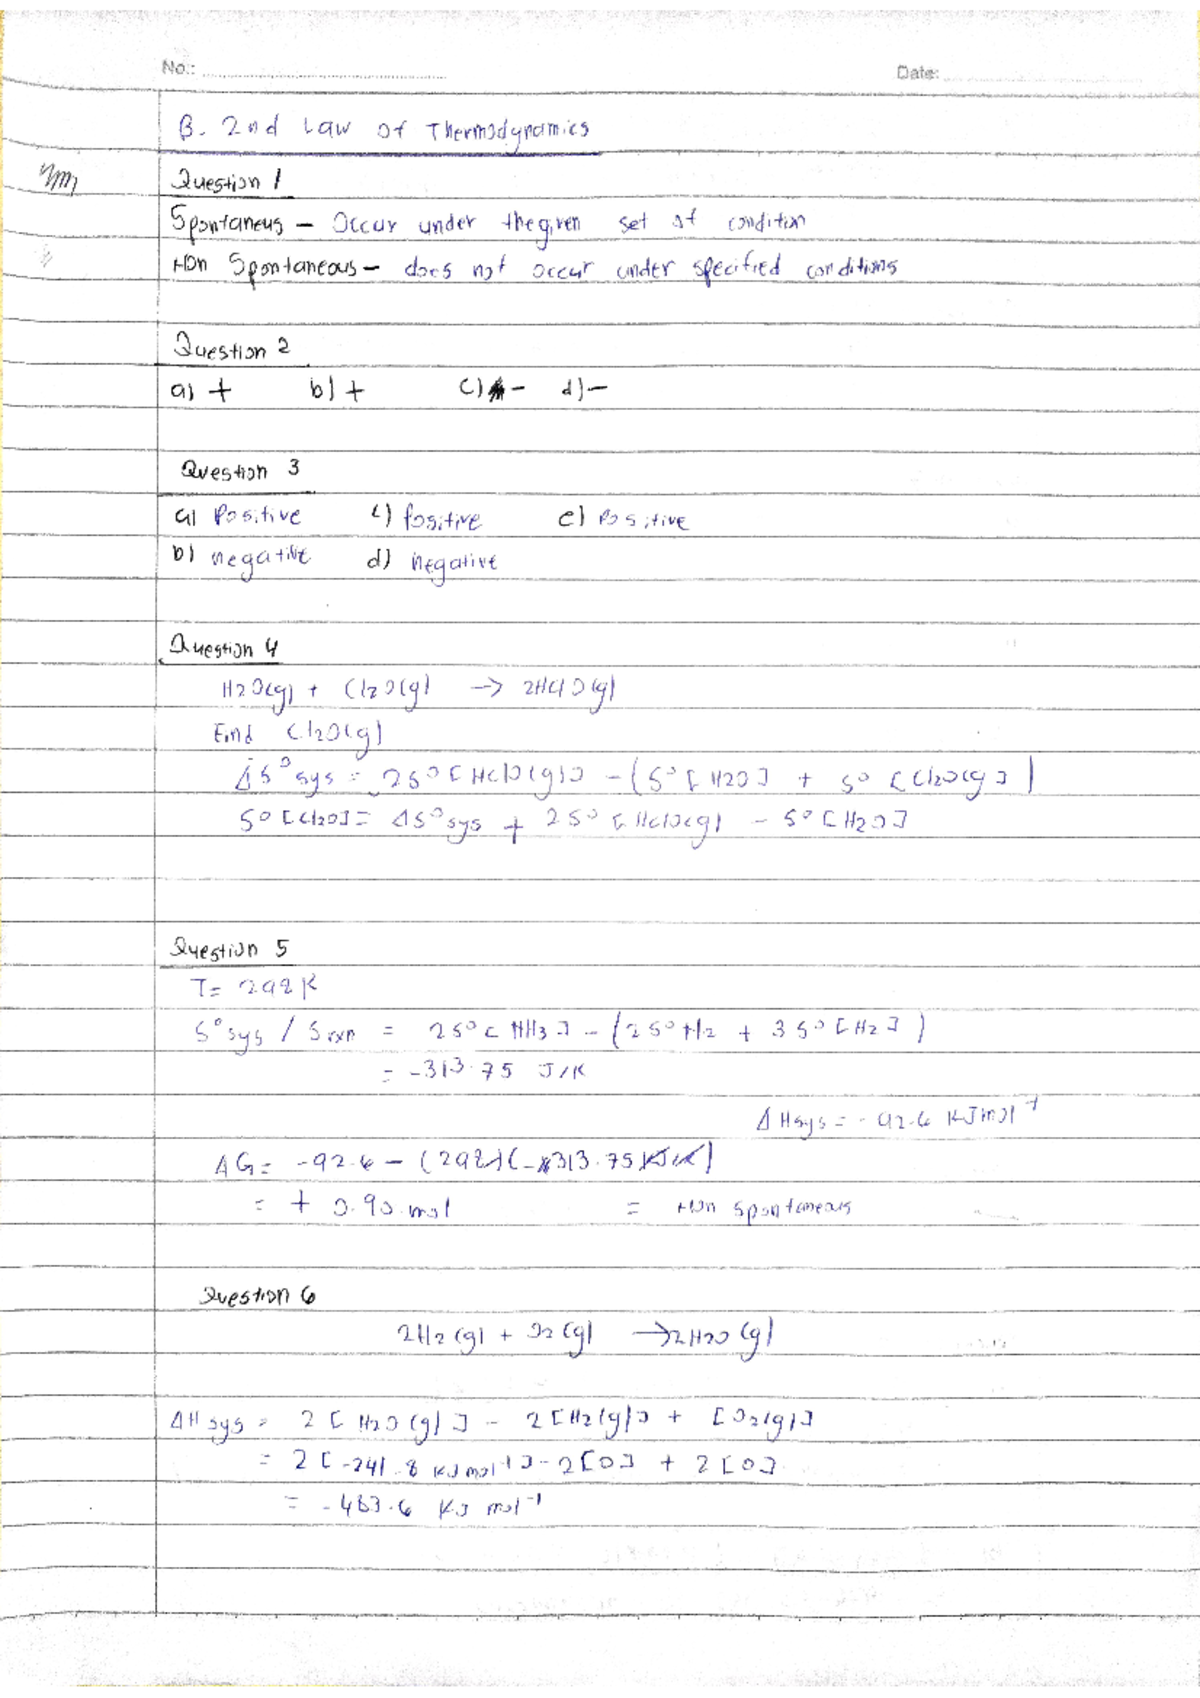 No.: Date:
B. 2nd Law of Thermodynamics
Question 1
Spontaneus – Occur under the given set of condition
Non Spontaneous – does not occur under specified conditions
Question 2
a) + b) + c) – d) –
Question 3
a) Positive c) Positive e) Positive
b) negative d) negative
Question 4
H2O(g) + Cl2O(g) → 2HClO(g)
Find Cl2O(g)
ΔS°sys = 2S°[HClO(g)] – (S°[H2O] + S°[Cl2O(g)])
S°[Cl2O] = ΔS°sys + 2S°[HClO(g)] – S°[H2O]
Question 5
T = 298K
S°sys / Srxn = 2S°[NH3] – (2S°N2 + 3S°[H2])
= -313.75 J/K
ΔHsys = -92.6 KJmol⁻¹
ΔG = -92.6 – (298)(-313.75KJ/K)
= + 0.90 mol = Non spontaneous
Question 6
2H2(g) + O2(g) → 2H2O(g)
ΔHsys = 2[H2O(g)] – 2[H2(g)] + [O2(g)]
= 2[-241.8 KJmol⁻¹] - 2[0] + 2[0]
= -483.6 KJ mol⁻¹